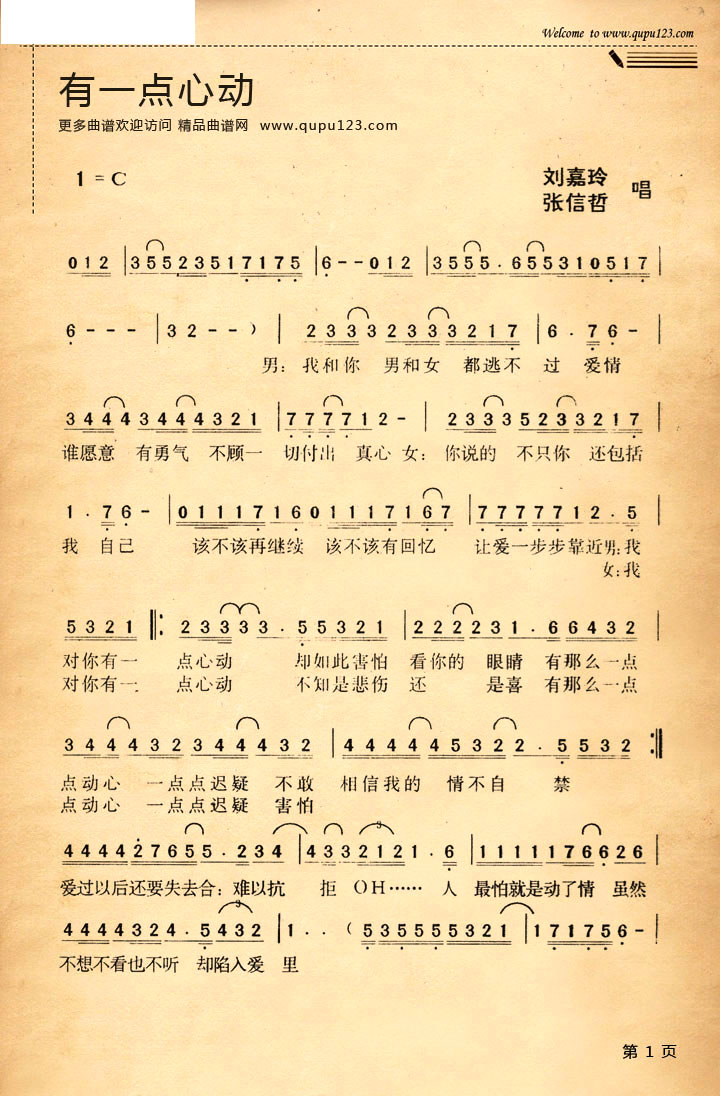 Welcome to www.qupu123.com
有一点心动
更多曲谱欢迎访问 精品曲谱网 www.qupu123.com
1 = C
刘嘉玲
张信哲 唱
0 1 2 | 3 5 5 2 3 5 1 7 1 7 5 | 6 - - 0 1 2 | 3 5 5 5 . 6 5 5 3 1 0 5 1 7 |
6 - - - | 3 2 - - ) | 2 3 3 3 2 3 3 3 2 1 7 | 6 . 7 6 - |
男：我和你 男和女 都逃不 过 爱情
3 4 4 4 3 4 4 4 3 2 1 | 7 7 7 7 1 2 - | 2 3 3 3 5 2 3 3 2 1 7 |
谁愿意 有勇气 不顾一 切付出 真心 女：你说的 不只你 还包括
1 . 7 6 - | 0 1 1 1 7 1 6 0 1 1 1 7 1 6 7 | 7 7 7 7 7 1 2 . 5 |
我 自己 该不该再继续 该不该有回忆 让爱一步步靠近男：我
女：我
5 3 2 1 ‖: 2 3 3 3 3 . 5 5 3 2 1 | 2 2 2 2 3 1 . 6 6 4 3 2 |
对你有一 点心动 却如此害怕 看你的 眼睛 有那么一点
对你有一 点心动 不知是悲伤 还 是喜 有那么一点
3 4 4 4 3 2 3 4 4 4 3 2 | 4 4 4 4 4 5 3 2 2 . 5 5 3 2 :‖
点动心 一点点迟疑 不敢 相信我的 情不自 禁
点动心 一点点迟疑 害怕
4 4 4 4 2 7 6 5 5 . 2 3 4 | 4 3 3 2 1 2 1 . 6 | 1 1 1 1 1 7 6 6 2 6 |
3
爱过以后还要失去合：难以抗 拒 OH…… 人 最怕就是动了情 虽然
4 4 4 4 3 2 4 . 5 4 3 2 | 1 . . ( 5 3 5 5 5 5 3 2 1 | 1 7 1 7 5 6 - |
3
不想不看也不听 却陷入爱 里
第 1 页